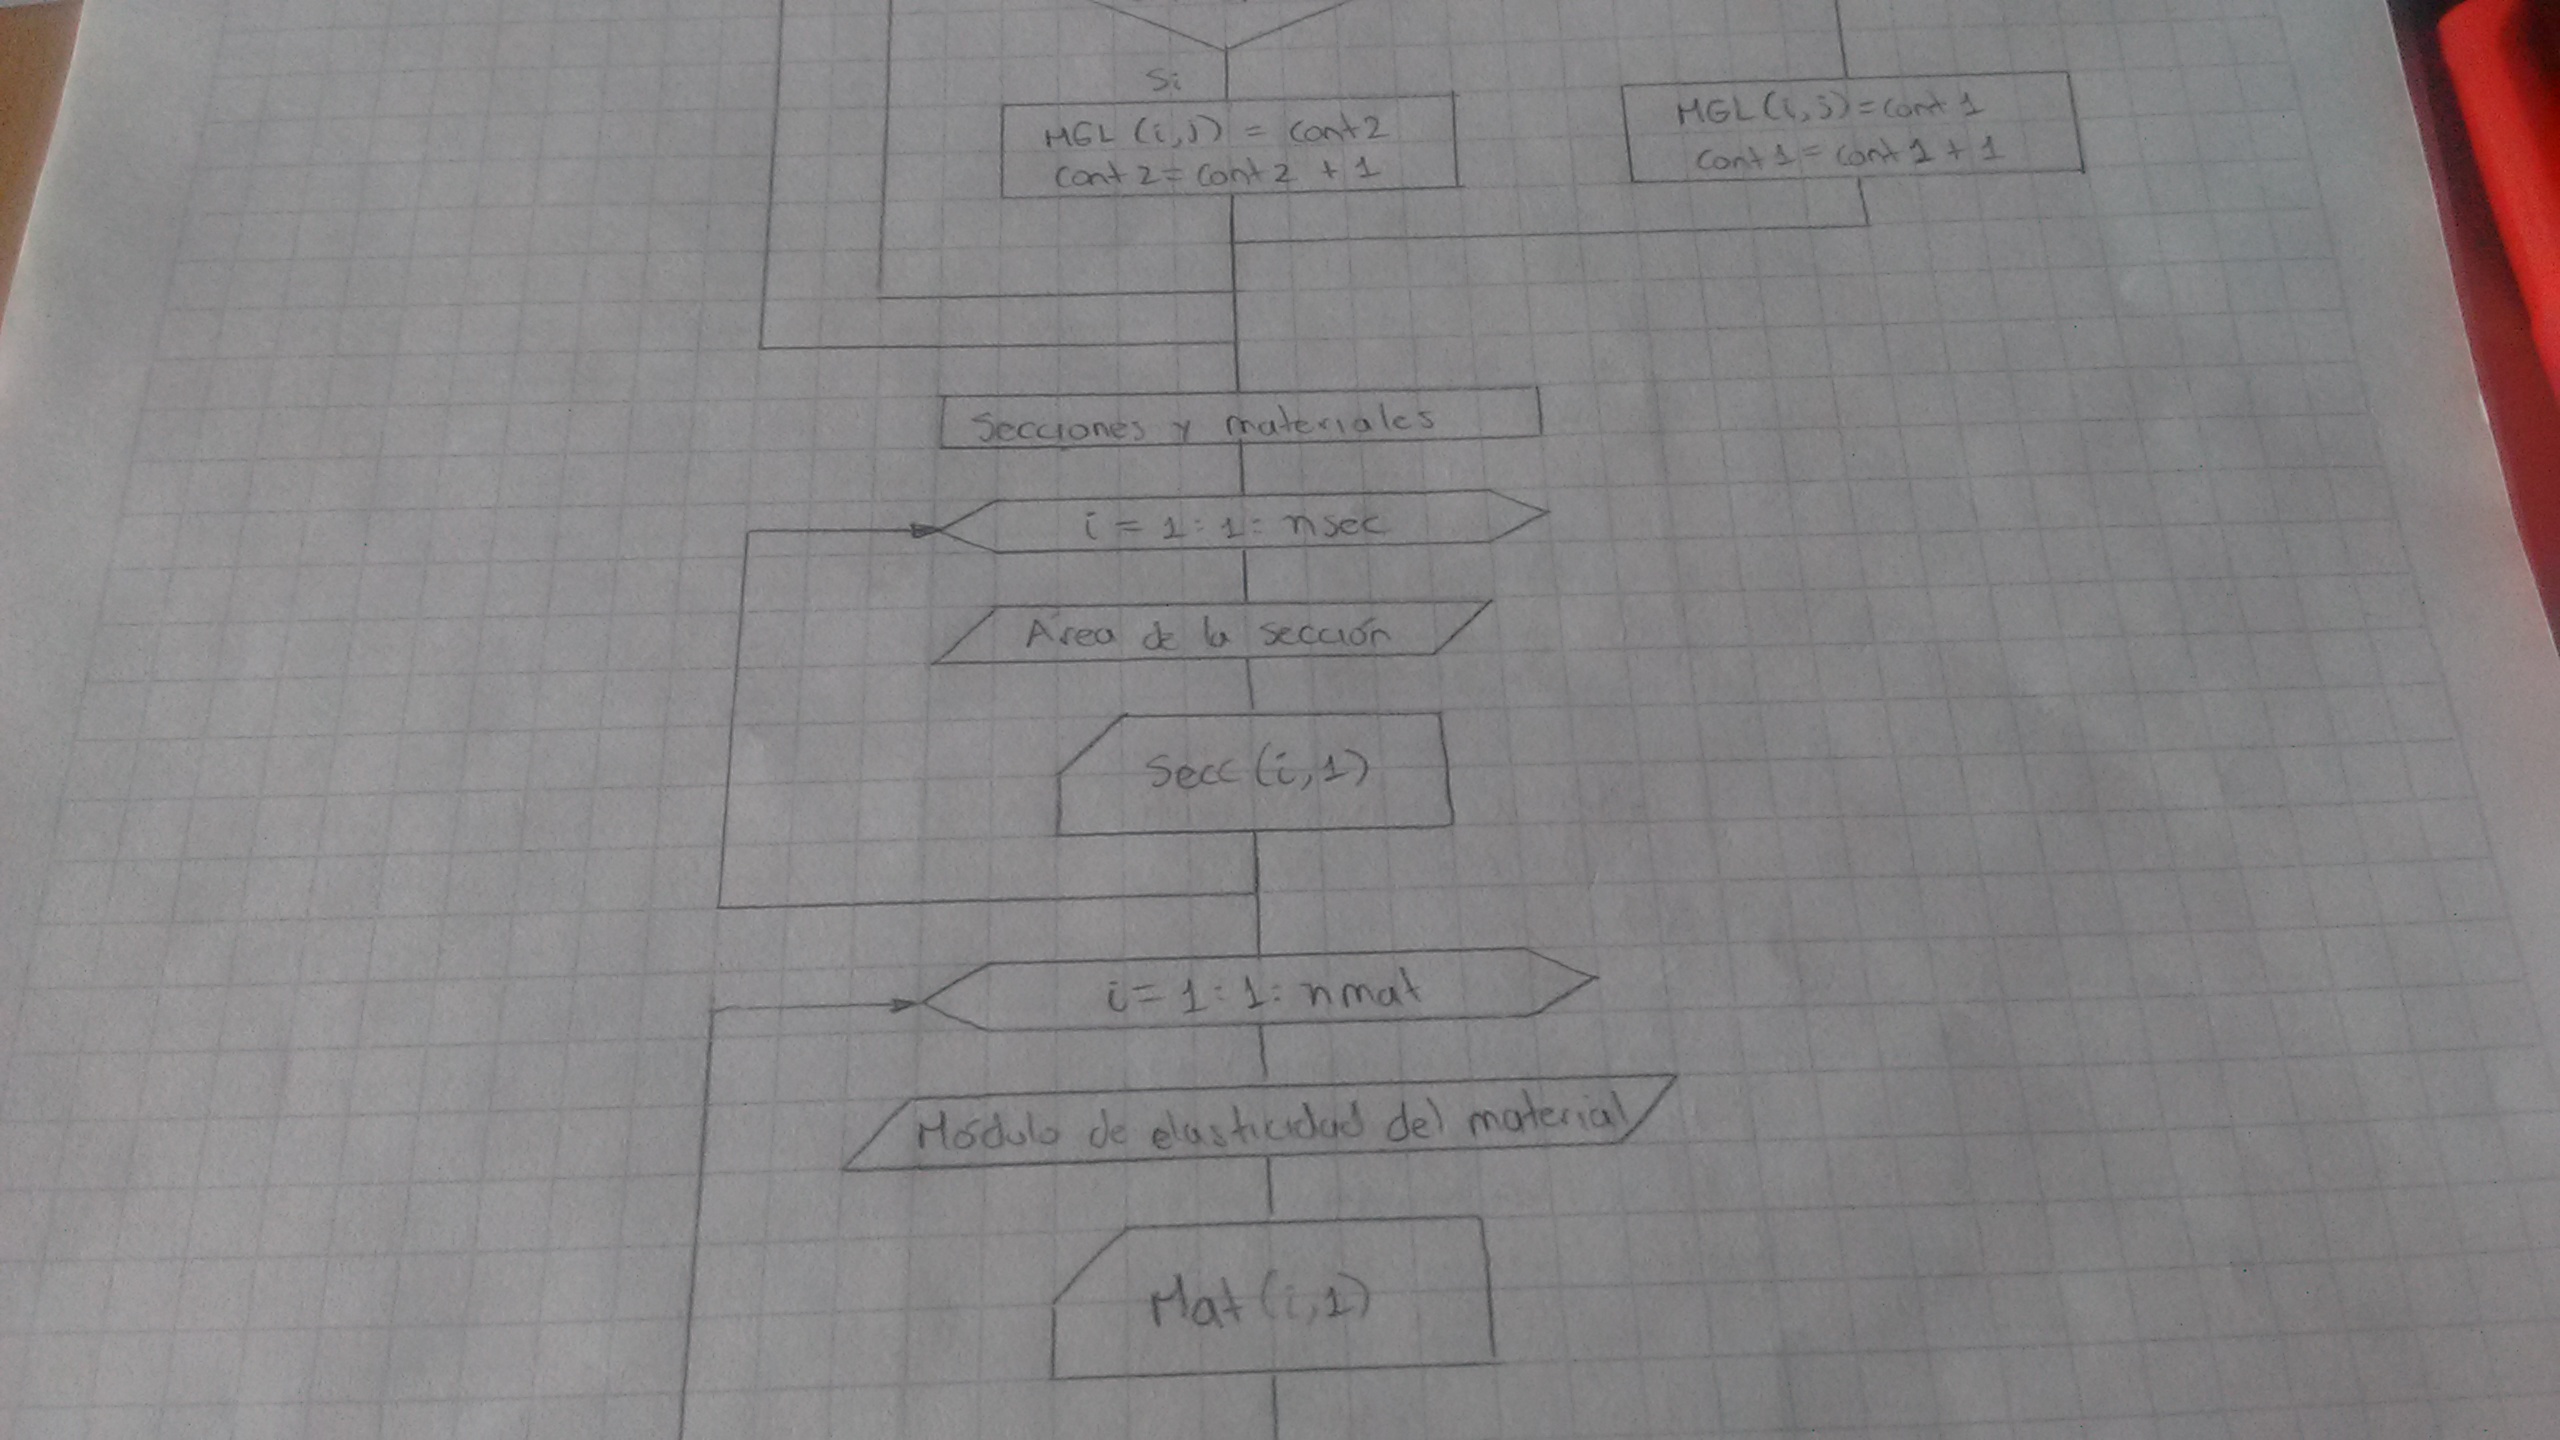 Si
MGL (i,j) = cont 2
cont 2 = cont 2 + 1
MGL (i,j) = cont 1
cont 1 = cont 1 + 1
Secciones y materiales
i = 1 : 1 : nsec
Área de la sección
Secc (i,1)
i = 1 : 1 : nmat
Módulo de elasticidad del material
Mat (i,1)